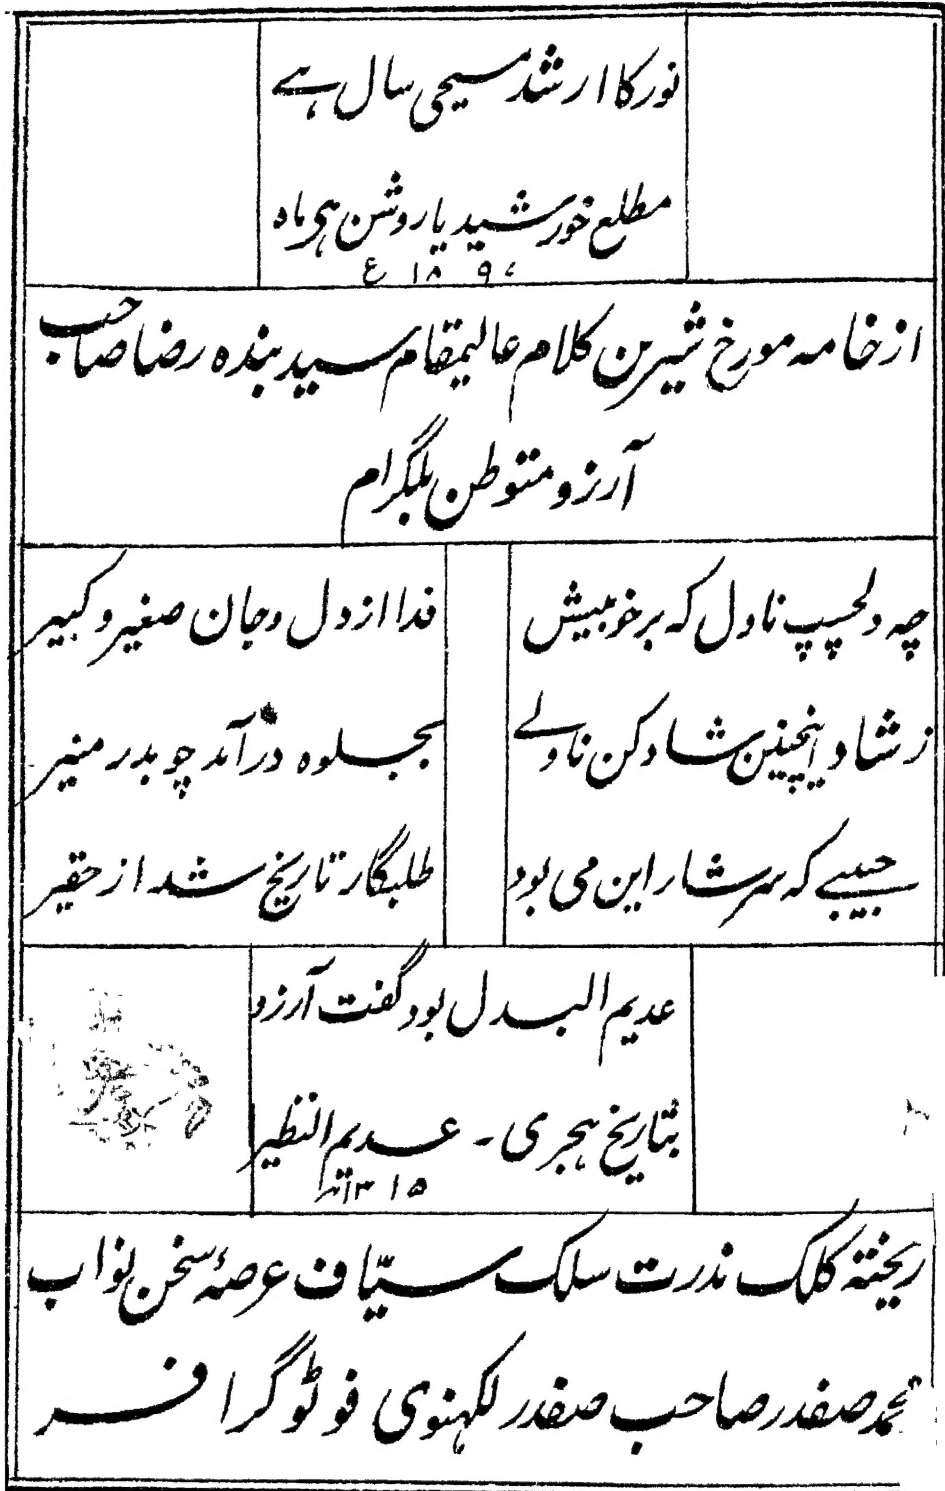 نور کا ارشد مسیحی سال ہے
مطلع خورشید یا روشن ہی ماہ
۱۸۹۷ع
از خامہ مورخ شیرین کلام عالیمقام سید بندہ رضا صاحب
آرزو متوطن بلگرام
چہ دلچسپ ناول کہ بر خوبیش
فدا از دل و جان صغیر و کبیر
ز شاد اینچنین شاد کن ناولے
بجلوہ در آمد چو بدر منیر
حبیبے کہ سرشار این می بود
طلبگار تاریخ شد از حقیر
عدیم البدل بود گفت آرزو
بتاریخ ہجری - عدیم النظیر
۱۳۱۵ھ
ریختۂ کلک ندرت سلک سیّاف عرصۂ سخن نواب
محمد صفدر صاحب صفدر لکہنوی فوٹوگرافر